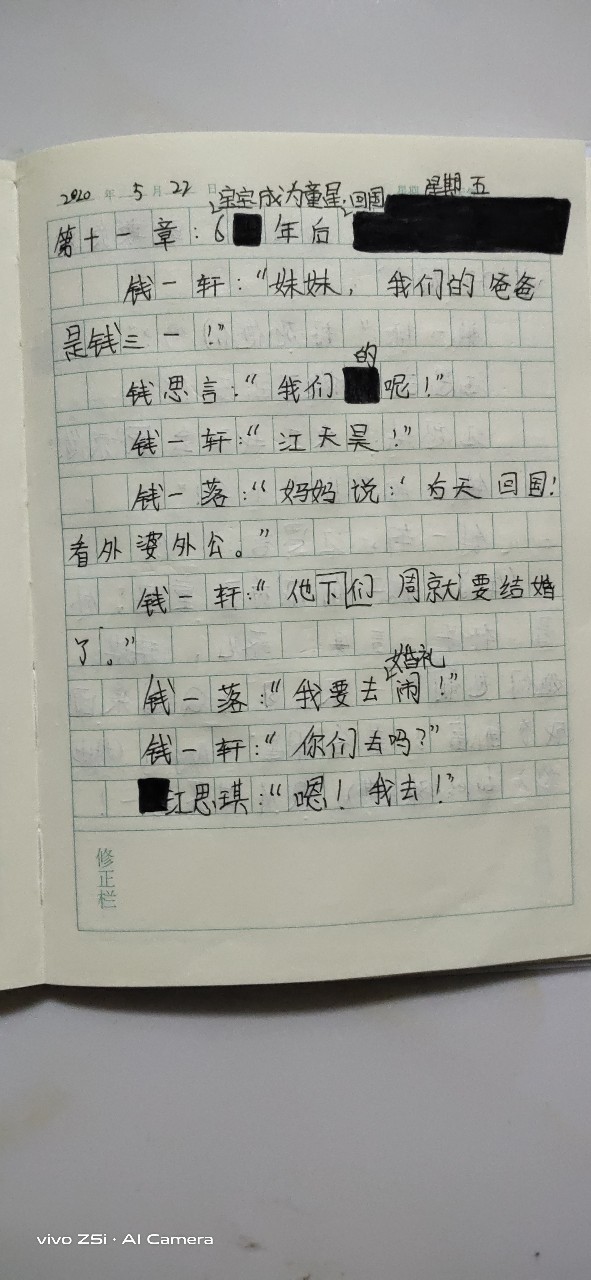 2020年5月22日 星期 星期五
宝宝成为童星,回国
第十一章:6年后
钱一轩:“妹妹,我们的爸爸
是钱三一!”
的
钱思言:“我们呢!”
钱一轩:“江天昊!”
钱一落:“妈妈说:‘右天回国!
看外婆外公。”
钱一轩:“他下们周就要结婚
了。”
婚礼
钱一落:“我要去闹!”
钱一轩:“你们去吗?”
江思琪:“嗯!我去!”
修正栏
vivo Z5i · AI Camera